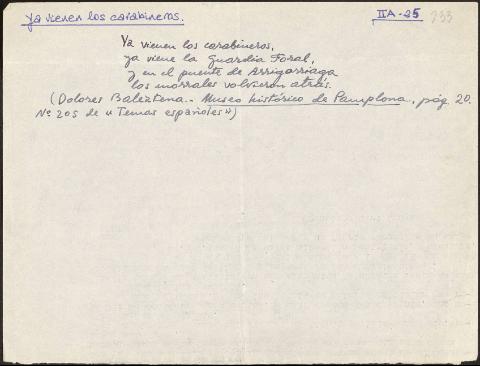 Ya vienen los carabineros. IIA-25 233
Ya vienen los carabineros,
ya viene la guardia Foral,
y en el puente de Arrigorriaga
los morrales volvieron atrás.
(Dolores Baleztena.- Museo histórico de Pamplona, pág. 20.
Nº 205 de «Temas españoles»)